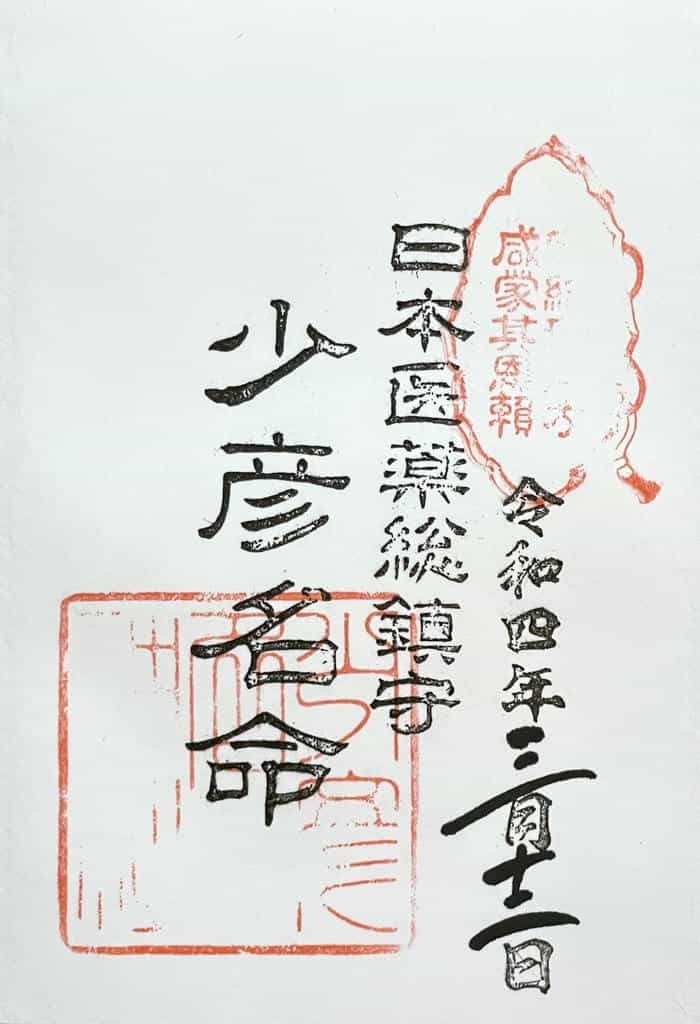 咸蒙其恩頼
令和四年三月十二日
日本医薬総鎮守
少彦名命